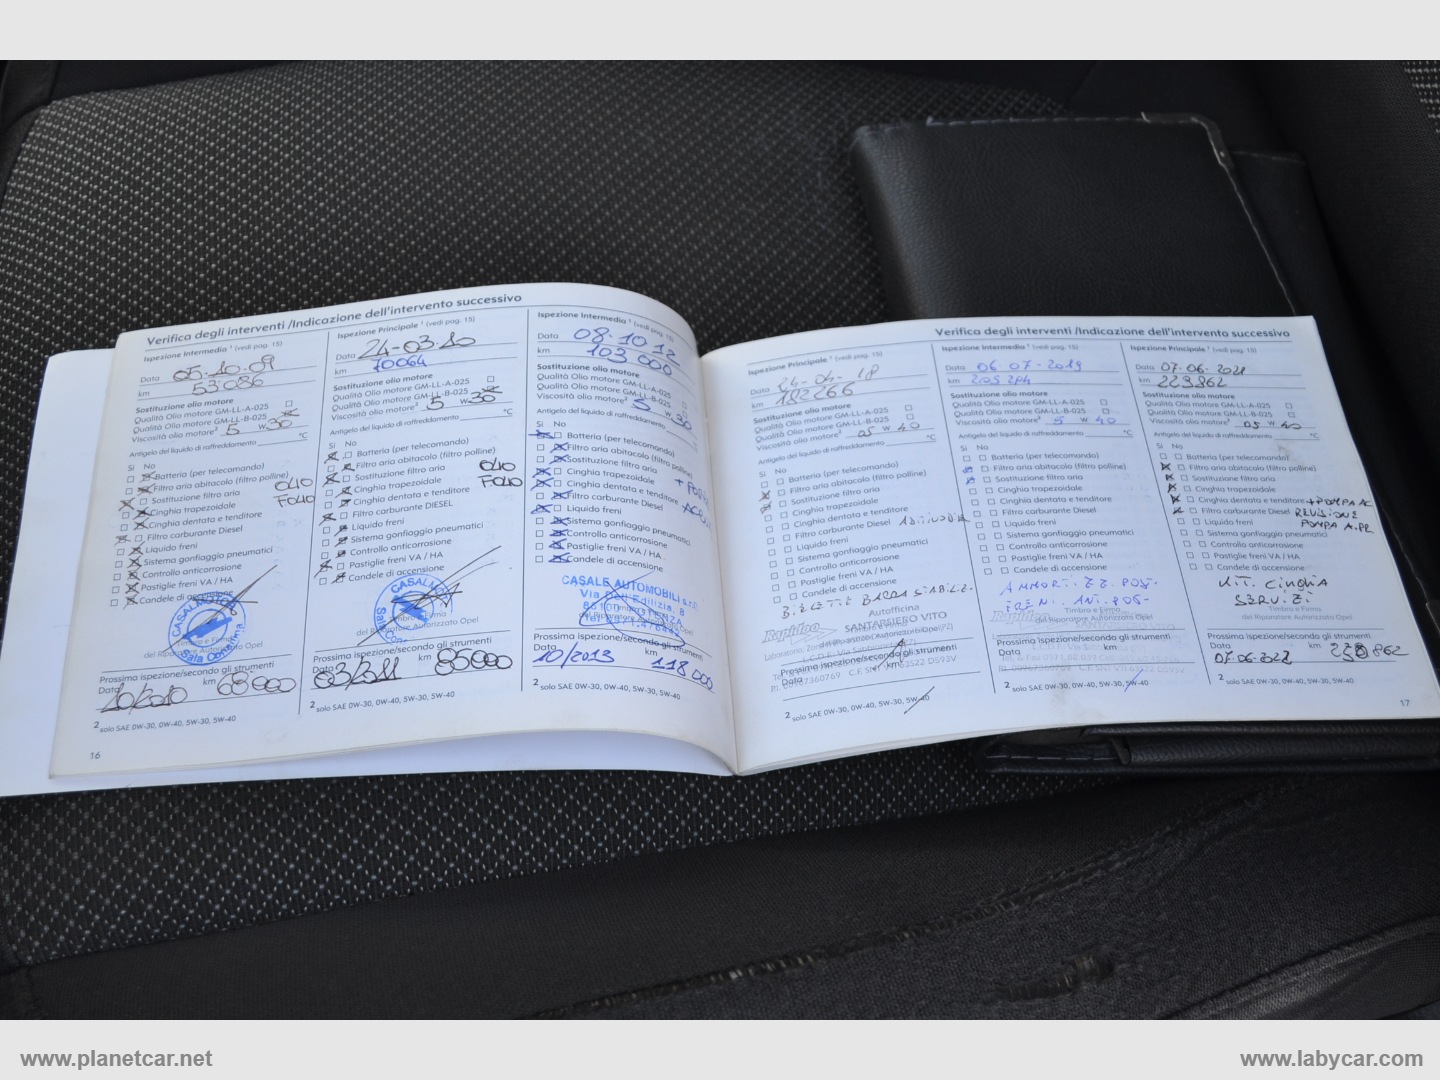 Verifica degli interventi /Indicazione dell'intervento successivo
Ispezione Intermedia ¹ (vedi pag. 15)
Data 05.10.09
km 53.086
Sostituzione olio motore
Qualità Olio motore GM-LL-A-025
Qualità Olio motore GM-LL-B-025
Viscosità olio motore² 5 W 30
Antigelo del liquido di raffreddamento °C
Si No
Batteria (per telecomando)
Filtro aria abitacolo (filtro polline)
Sostituzione filtro aria
Cinghia trapezoidale
Cinghia dentata e tenditore
Filtro carburante Diesel
Liquido freni
Sistema gonfiaggio pneumatici
Controllo anticorrosione
Pastiglie freni VA / HA
Candele di accensione
CASALMOTOR
Sala Consilina
Timbro e Firma
del Riparatore Autorizzato Opel
Prossima ispezione/secondo gli strumenti
Data km
10/2010 68000
² solo SAE 0W-30, 0W-40, 5W-30, 5W-40
16
Ispezione Principale ¹ (vedi pag. 15)
Data 24-03.10
km 70064
Sostituzione olio motore
Qualità Olio motore GM-LL-A-025
Qualità Olio motore GM-LL-B-025
Viscosità olio motore² 5 W 30
Antigelo del liquido di raffreddamento °C
Si No
Batteria (per telecomando)
Filtro aria abitacolo (filtro polline)
Sostituzione filtro aria
Cinghia trapezoidale
Cinghia dentata e tenditore
Filtro carburante DIESEL
Liquido freni
Sistema gonfiaggio pneumatici
Controllo anticorrosione
Pastiglie freni VA / HA
Candele di accensione
CASALMOTOR
Timbro e Firma
del Riparatore Autorizzato Opel
Prossima ispezione/secondo gli strumenti
Data km
03/2011 85000
² solo SAE 0W-30, 0W-40, 5W-30, 5W-40
Ispezione Intermedia ¹ (vedi pag. 15)
Data 08.10.12
km 103 000
Sostituzione olio motore
Qualità Olio motore GM-LL-A-025
Qualità Olio motore GM-LL-B-025
Viscosità olio motore² 5 W 30
Antigelo del liquido di raffreddamento °C
Si No
Batteria (per telecomando)
Filtro aria abitacolo (filtro polline)
Sostituzione filtro aria
Cinghia trapezoidale
Cinghia dentata e tenditore
Filtro carburante Diesel
Liquido freni
Sistema gonfiaggio pneumatici
Controllo anticorrosione
Pastiglie freni VA / HA
Candele di accensione
CASALE AUTOMOBILI s.r.l.
Via Dell'Edilizia, 8
Prossima ispezione/secondo gli strumenti
Data km
10/2013 118 000
² solo SAE 0W-30, 0W-40, 5W-30, 5W-40
Verifica degli interventi /Indicazione dell'intervento successivo
Ispezione Principale ¹ (vedi pag. 15)
Data 24-04-18
km 182266
Sostituzione olio motore
Qualità Olio motore GM-LL-A-025
Qualità Olio motore GM-LL-B-025
Viscosità olio motore² 05 W 40
Antigelo del liquido di raffreddamento °C
Si No
Batteria (per telecomando)
Filtro aria abitacolo (filtro polline)
Sostituzione filtro aria
Cinghia trapezoidale
Cinghia dentata e tenditore
Filtro carburante Diesel
Liquido freni
Sistema gonfiaggio pneumatici
Controllo anticorrosione
Pastiglie freni VA / HA
Candele di accensione
Autofficina
SANTARSIERO VITO
Prossima ispezione/secondo gli strumenti
Data km
² solo SAE 0W-30, 0W-40, 5W-30, 5W-40
Ispezione Intermedia ¹ (vedi pag. 15)
Data 06 07-2019
km
Sostituzione olio motore
Qualità Olio motore GM-LL-A-025
Qualità Olio motore GM-LL-B-025
Viscosità olio motore² 5 W 40
Antigelo del liquido di raffreddamento °C
Si No
Batteria (per telecomando)
Filtro aria abitacolo (filtro polline)
Sostituzione filtro aria
Cinghia trapezoidale
Cinghia dentata e tenditore
Filtro carburante Diesel
Liquido freni
Sistema gonfiaggio pneumatici
Controllo anticorrosione
Pastiglie freni VA / HA
Candele di accensione
AMMORTIZZ. POST.
FRENI. ANT. POS-
Timbro e Firma
Prossima ispezione/secondo gli strumenti
Data km
² solo SAE 0W-30, 0W-40, 5W-30, 5W-40
Ispezione Principale ¹ (vedi pag. 15)
Data 07.06.2021
km 223862
Sostituzione olio motore
Qualità Olio motore GM-LL-A-025
Qualità Olio motore GM-LL-B-025
Viscosità olio motore² 05 W 40
Antigelo del liquido di raffreddamento °C
Si No
Batteria (per telecomando)
Filtro aria abitacolo (filtro polline)
Sostituzione filtro aria
Cinghia trapezoidale
Cinghia dentata e tenditore + POMPA AC
Filtro carburante Diesel REVISIONE
Liquido freni POMPA A.PR
Sistema gonfiaggio pneumatici
Controllo anticorrosione
Pastiglie freni VA / HA
Candele di accensione
KIT. CINGHIA
SERVIZI
Timbro e Firma
del Riparatore Autorizzato Opel
Prossima ispezione/secondo gli strumenti
Data km
07.06.2022
² solo SAE 0W-30, 0W-40, 5W-30, 5W-40
17
www.planetcar.net
www.labycar.com